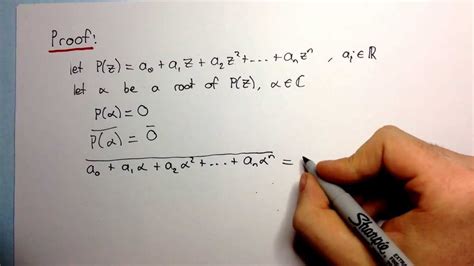 Proof!
let P(z) = a₀ + a₁z + a₂z² + ... + aₙzⁿ , aᵢ∈ℝ
let α be a root of P(z), α∈ℂ
P(α) = 0
P̅(̅α̅)̅ = 0̅
a̅₀̅ ̅+̅ ̅a̅₁̅α̅ ̅+̅ ̅a̅₂̅α̅²̅ ̅+̅ ̅.̅.̅.̅ ̅+̅ ̅a̅ₙ̅α̅ⁿ̅ =
Sharpie